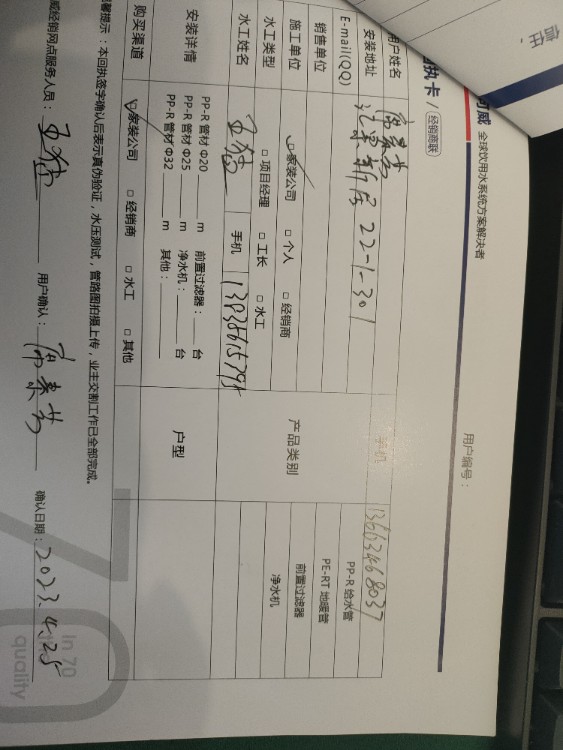 信任·
可威 全球饮用水系统方案解决者
回执卡 / 经销商联
用户编号：
用户姓名
手机 13663468037
安装地址 22-1-301
E-mail(QQ)
销售单位
施工单位 □家装公司 □ 个人 □ 经销商
水工类型 □ 项目经理 □ 工长 □ 水工
水工姓名 王猛 手机
产品类别
PP-R 给水管
PE-RT 地暖管
前置过滤器
净水机
安装详情
PP-R 管材 Φ20 m 前置过滤器： 台
PP-R 管材 Φ25 m 净水机： 台
PP-R 管材 Φ32 m 其他：
户型
购买渠道 □家装公司 □ 经销商 □ 水工 □ 其他
馨提示：本回执签字确认后表示真伪验证，水压测试，管路图拍摄上传，业主交割工作已全部完成。
威经销网点服务人员： 王猛 用户确认： 确认日期： 2023.4.25
70
In 70
quality